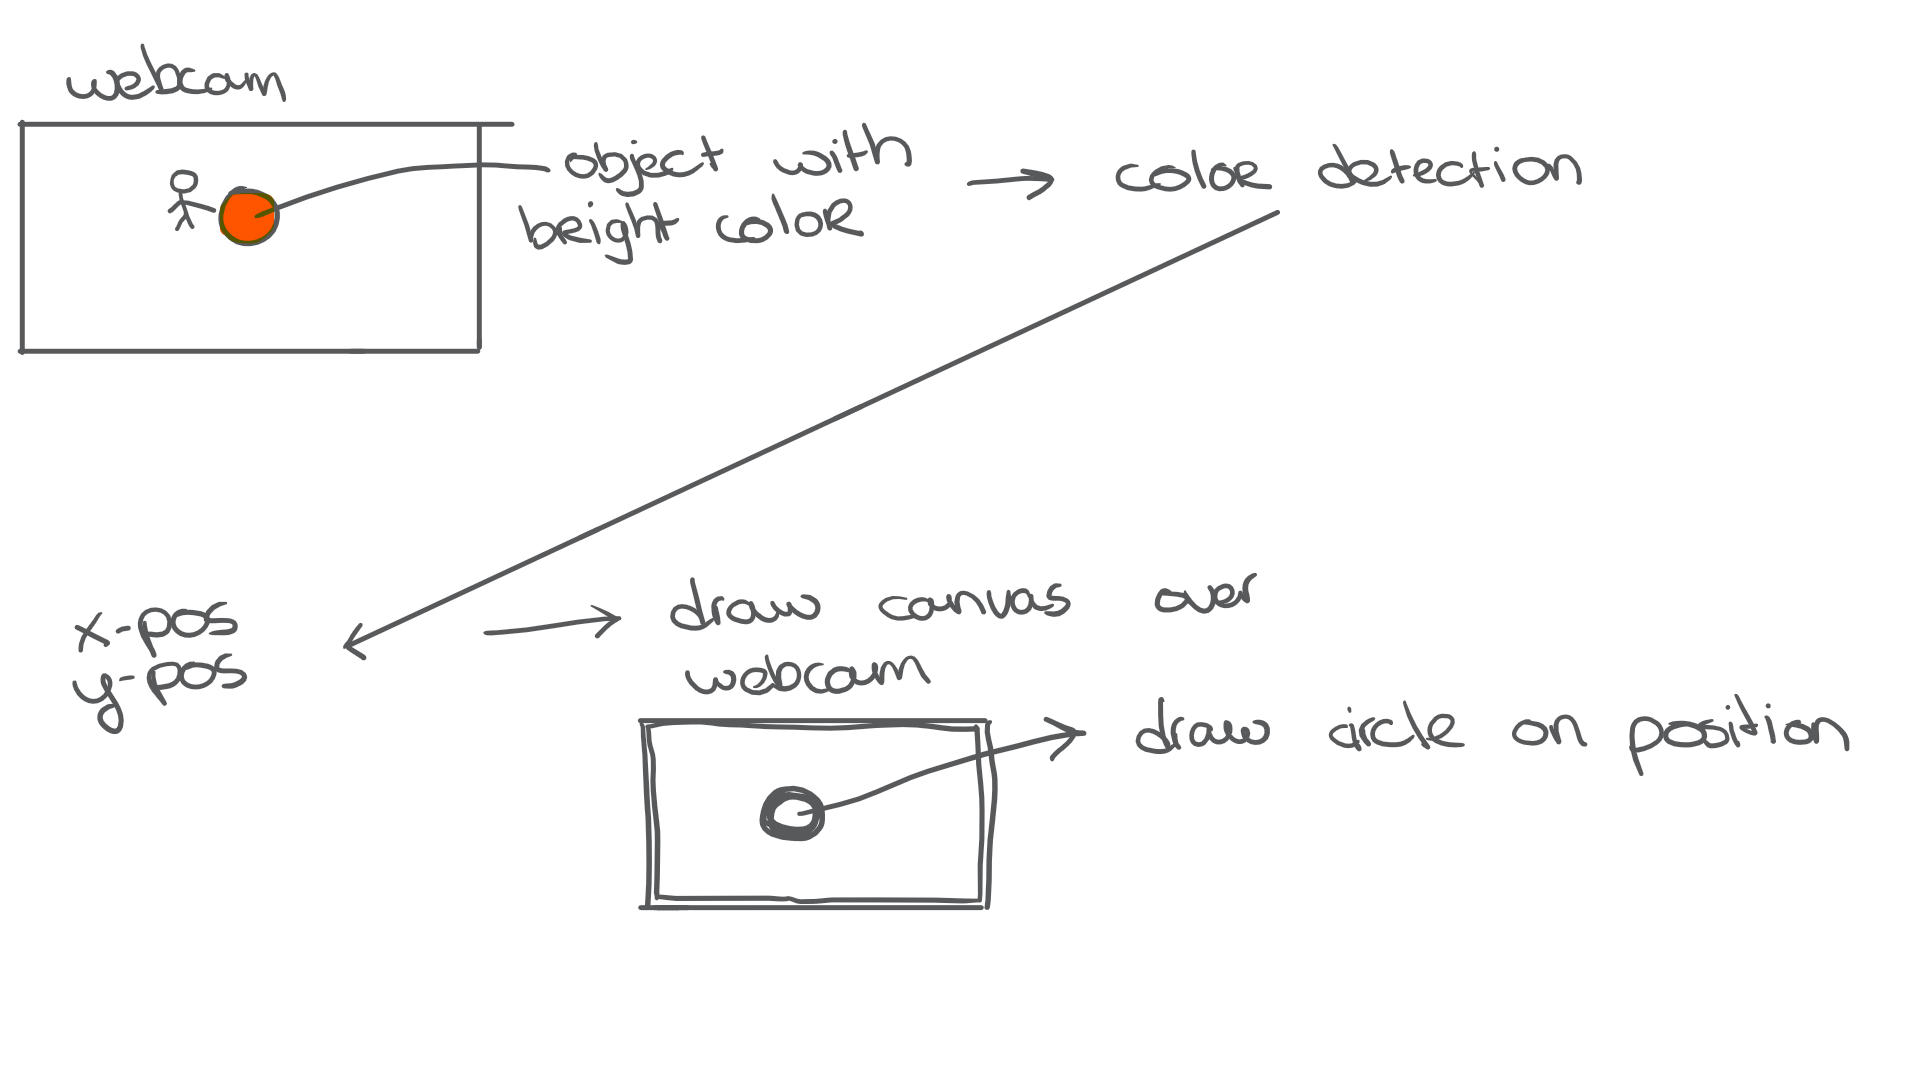 webcam
object with
bright color
color detection
x-pos
y-pos
draw canvas over
webcam
draw circle on position